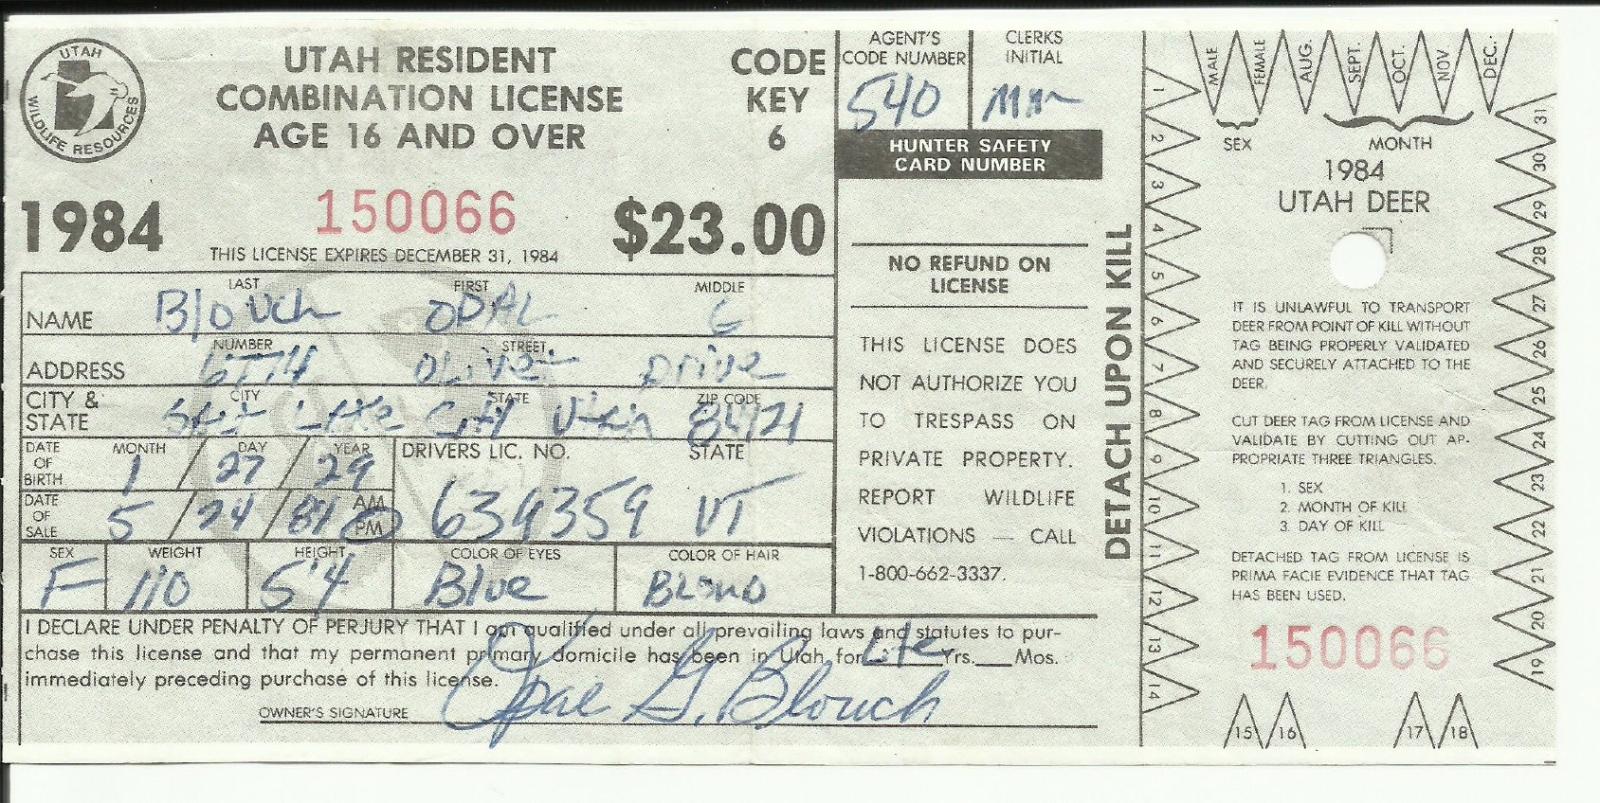 UTAH
WILDLIFE RESOURCES
UTAH RESIDENT
COMBINATION LICENSE
AGE 16 AND OVER
CODE
KEY
6
1984
150066
$23.00
THIS LICENSE EXPIRES DECEMBER 31, 1984
LAST FIRST MIDDLE
NAME Blouch OPAL G
NUMBER STREET
ADDRESS 6774 Oliver Drive
CITY STATE ZIP CODE
CITY & STATE Salt Lake City Utah 84121
DATE OF BIRTH MONTH DAY YEAR 1 / 27 / 29
DRIVERS LIC. NO. STATE
DATE OF SALE 5 / 24 / 84 AM PM
634359 UT
SEX WEIGHT HEIGHT COLOR OF EYES COLOR OF HAIR
F 110 5'4 Blue Blond
I DECLARE UNDER PENALTY OF PERJURY THAT I am qualified under all prevailing laws and statutes to pur-
chase this license and that my permanent primary domicile has been in Utah for Life Yrs. Mos.
immediately preceding purchase of this license.
OWNER'S SIGNATURE Opal G. Blouch
AGENT'S CODE NUMBER
540
CLERKS INITIAL
HUNTER SAFETY
CARD NUMBER
NO REFUND ON
LICENSE
THIS LICENSE DOES
NOT AUTHORIZE YOU
TO TRESPASS ON
PRIVATE PROPERTY.
REPORT WILDLIFE
VIOLATIONS — CALL
1-800-662-3337.
DETACH UPON KILL
MALE FEMALE AUG. SEPT. OCT. NOV DEC.
SEX MONTH
1984
UTAH DEER
IT IS UNLAWFUL TO TRANSPORT
DEER FROM POINT OF KILL WITHOUT
TAG BEING PROPERLY VALIDATED
AND SECURELY ATTACHED TO THE
DEER.
CUT DEER TAG FROM LICENSE AND
VALIDATE BY CUTTING OUT AP-
PROPRIATE THREE TRIANGLES.
1. SEX
2. MONTH OF KILL
3. DAY OF KILL
DETACHED TAG FROM LICENSE IS
PRIMA FACIE EVIDENCE THAT TAG
HAS BEEN USED.
150066
1 2 3 4 5 6 7 8 9 10 11 12 13 14
15 16 17 18
19 20 21 22 23 24 25 26 27 28 29 30 31